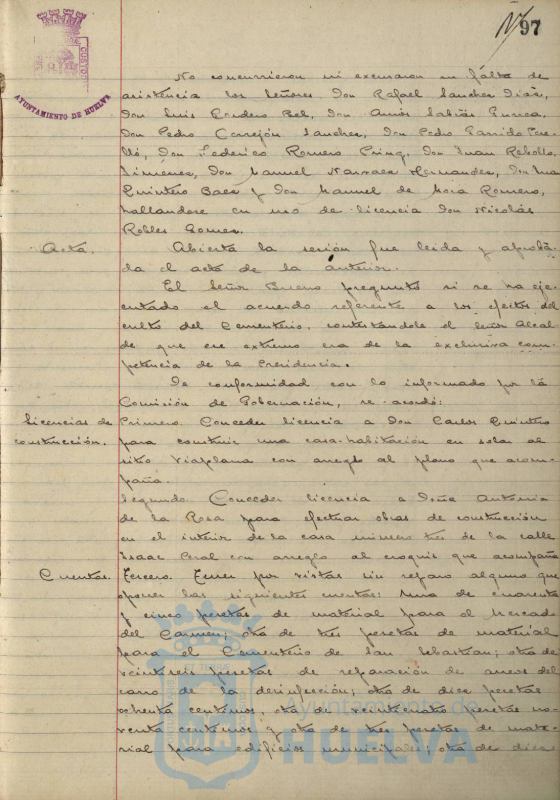 97
CUSTODIA
AYUNTAMIENTO DE HUELVA
No concurrieron ni excusaron su falta de
asistencia los Señores Don Rafael Sanchez Diaz,
Don Luis Cordero Bel, Don Amós Sabrás Gurrea,
Don Pedro Cerrejón Sanchez, Don Pedro Garrido Pere-
lló, Don Federico Romero Pring, Don Juan Rebollo
Jimenez, Don Manuel Narvaez Hernandez, Don Juan
Quintero Baez y Don Manuel de Mora Romero,
hallandose en uso de licencia Don Nicolás
Robles Gomez.
Acta.
Abierta la sesión fue leida y aproba-
da el acta de la anterior.
El Señor Bueno preguntó si se ha eje-
cutado el acuerdo referente a los efectos del
culto del Cementerio, contestándole el Señor Alcal-
de que ese extremo era de la exclusiva com-
petencia de la Presidencia.
De conformidad con lo informado por la
Comisión de Gobernación, se acordó:
Licencias de
construcción.
Primero. Conceder licencia a Don Carlos Quintero
para construir una casa-habitación en solar al
sitio Viaplana con arreglo al plano que acom-
paña.
Segundo. Conceder licencia a Doña Antonia
de la Rosa para efectuar obras de construcción
en el interior de la casa número tres de la calle
Isaac Peral con arreglo al croquis que acompaña
Cuentas.
Tercero. Tener por vistas sin reparo alguno que
oponer las siguientes cuentas: Una de cuarenta
y cinco pesetas de material para el Mercado
del Carmen; otra de tres pesetas de material
para el Cementerio de San Sebastian; otra de
veintiseis pesetas de reparación de arneos del
carro de la desinfección; otra de diez pesetas
ochenta centimos, otra de veinticuatro pesetas no-
venta centimos y otra de tres pesetas de mate-
rial para edificios municipales; otra de diez
Ayuntamiento de
HUELVA